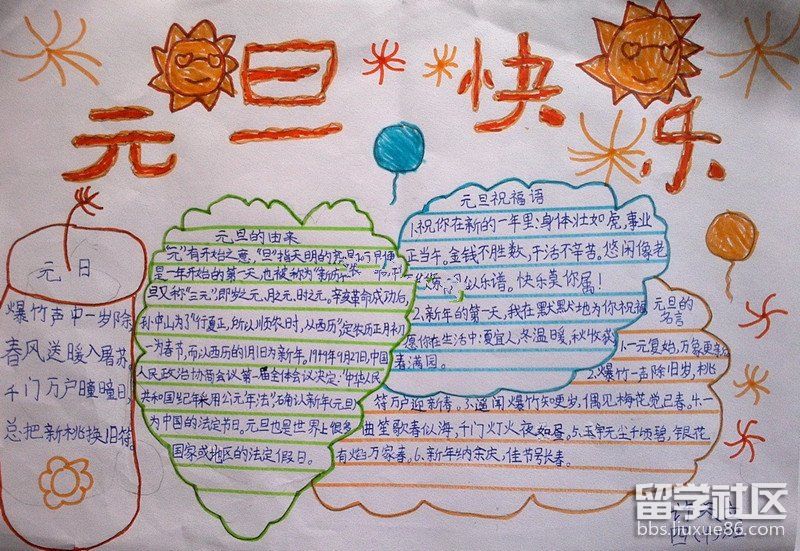 元旦快乐
元日
爆竹声中一岁除
春风送暖入屠苏
千门万户曈曈日,
总把新桃换旧符。
元旦的由来
"元"有开始之意,"旦"指天明的
是一年开始的第一天,也被称为"新历年"
旦又称"三元",即岁之元、月之元、时之元。辛亥革命成功后,
孙中山为了"行夏正,所以顺农时,以西历"定农历正月初
一为春节,而以西历的1月1日为新年。1949年9月27日,中国
人民政治协商会议第一届全体会议决定:"中华人民
共和国纪年采用公元年法"确认新年(元旦)
为中国的法定节日。元旦也是世界上很多
国家或地区的法定假日。
元旦祝福语
1.祝你在新的一年里:身体壮如虎,事业
正当午。金钱不胜数,干活不辛苦。悠闲像老
似乐谱。快乐莫你属!
2、新年的第一天,我在默默地为你祝福
愿你在生活中:夏宜人,冬温暖,秋收获
春满园。
元旦的
名言
1.一元复始,万象更新
2.爆竹一声除旧岁,桃
符万户迎新春。3.遥闻爆竹知更岁,偶见梅花觉已春。4.一
曲笙歌春似海,千门灯火夜如昼。5.玉宇无尘千顷碧,银花
有焰万家春。6、新年纳余庆,佳节号长春。
留学社区
bbs.liuxue86.com